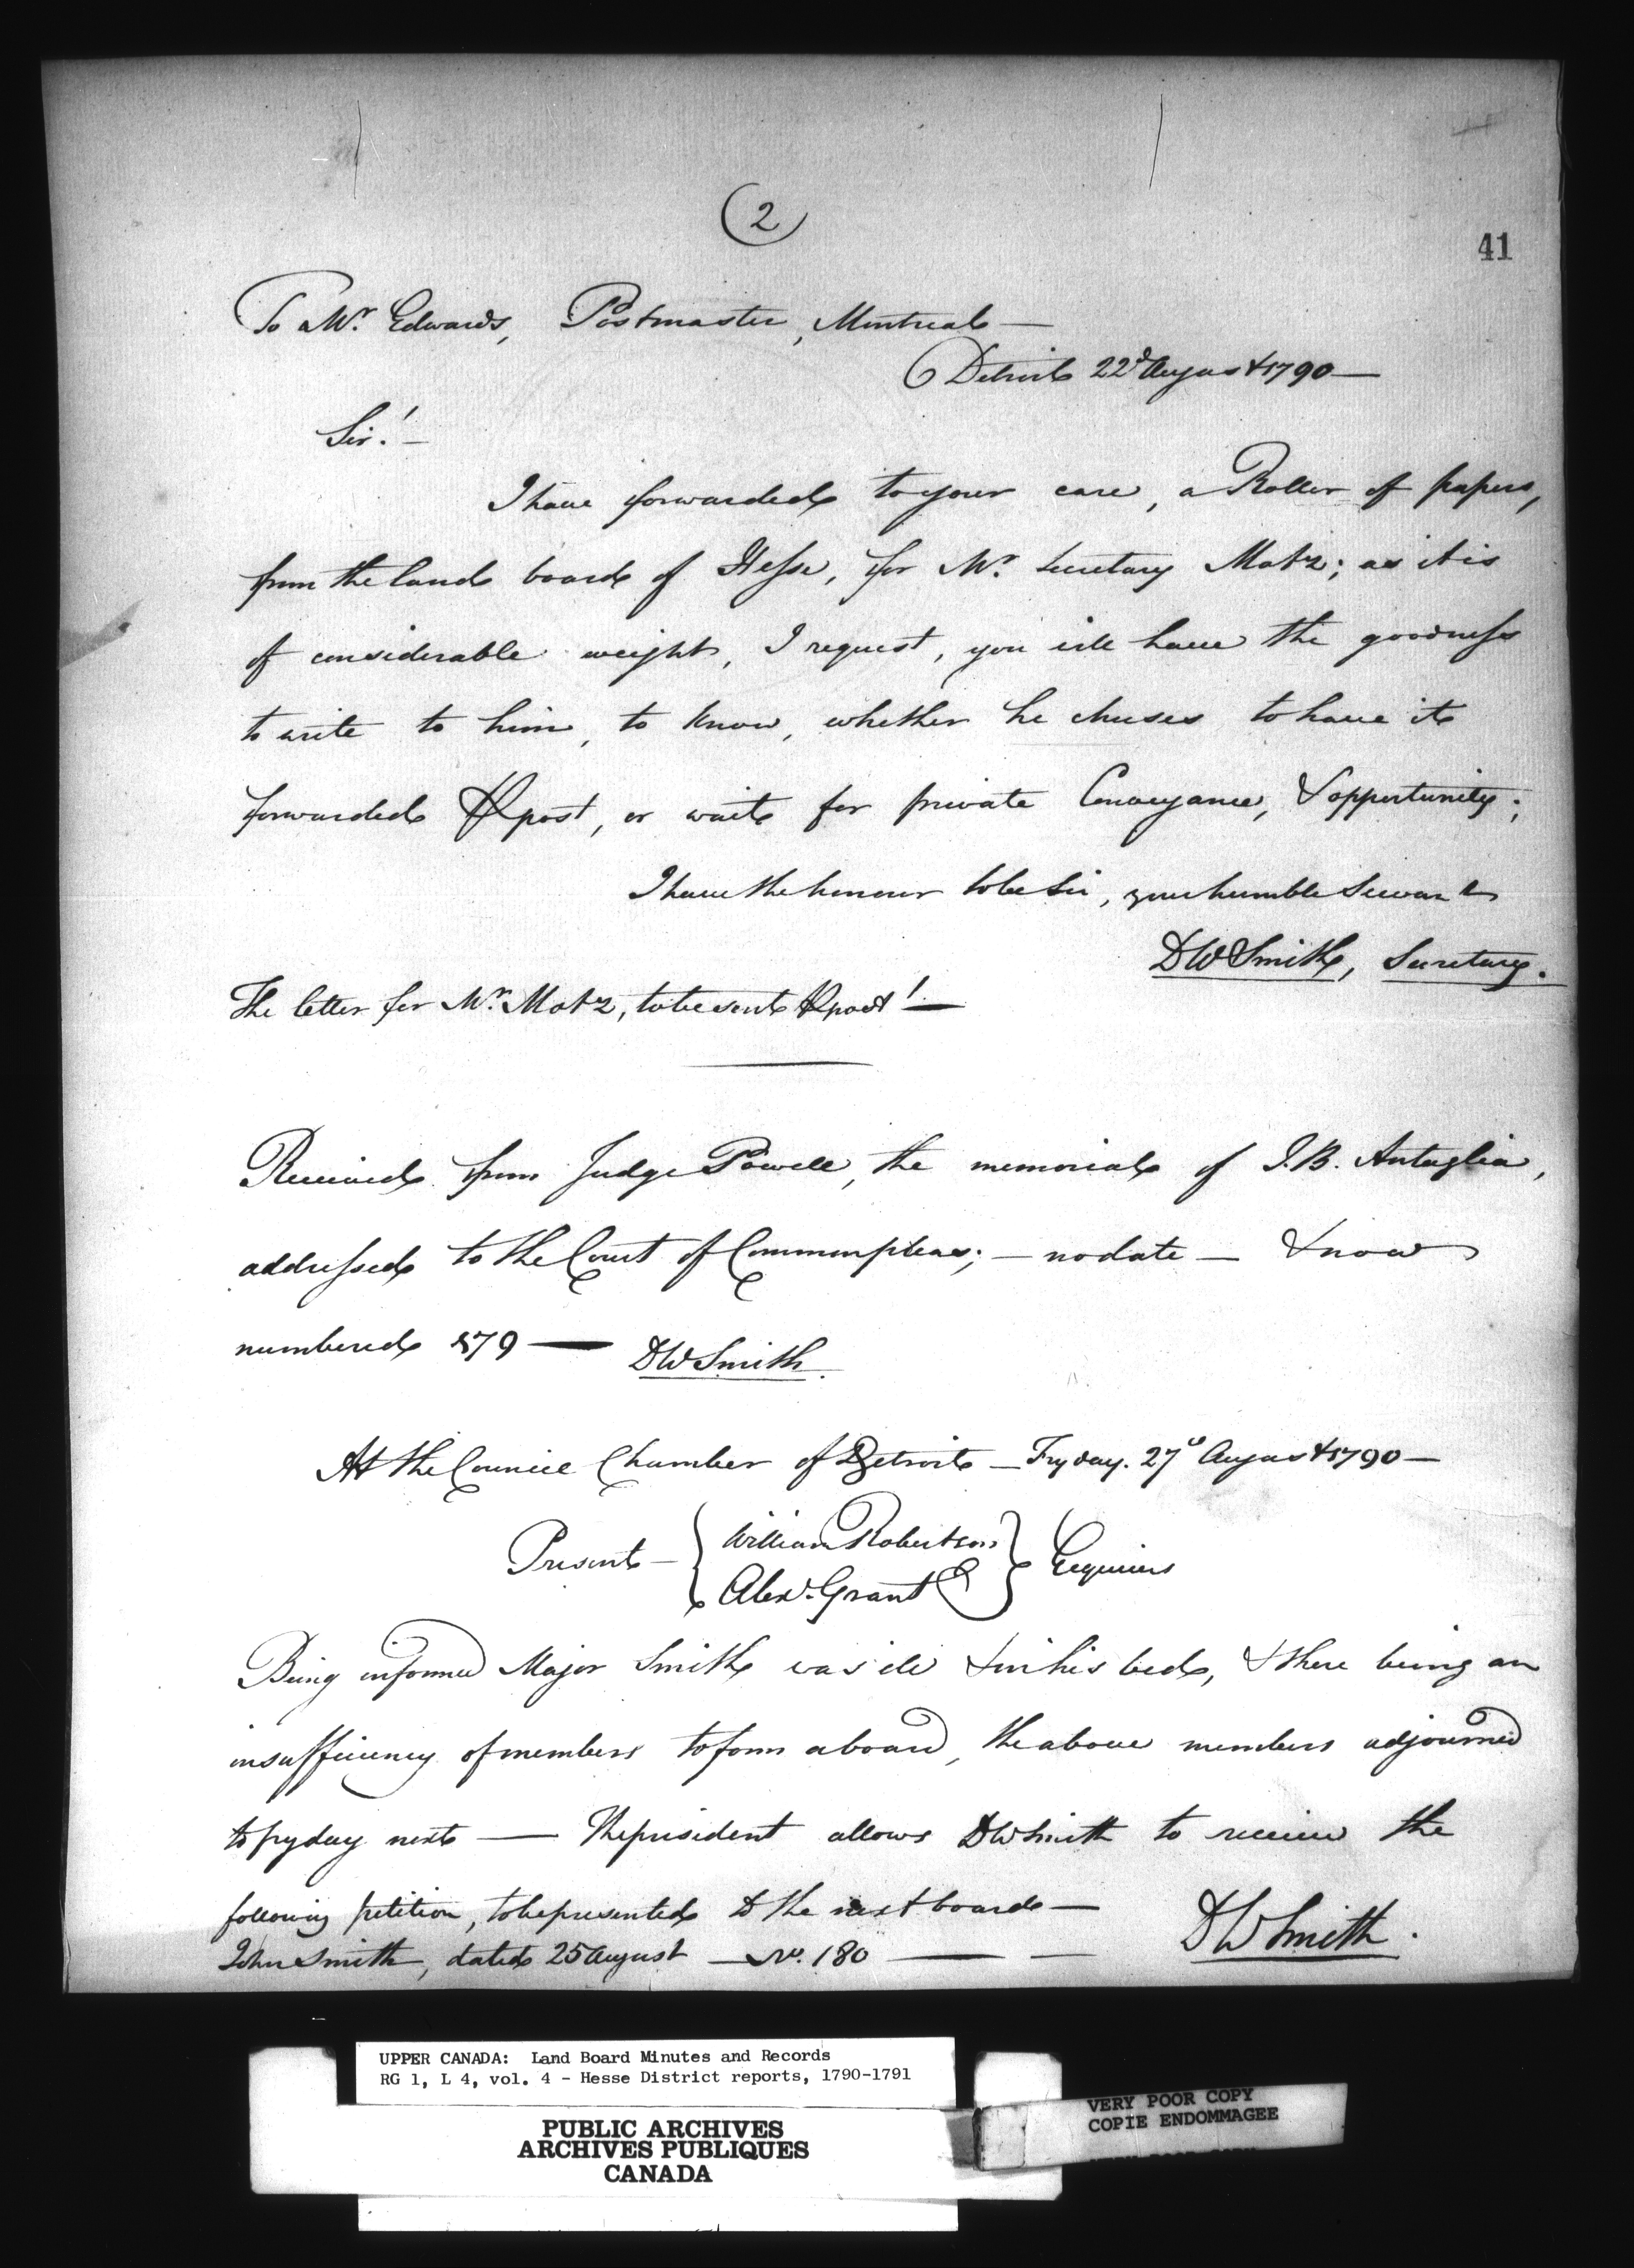 (2)
41
To Mr. Edwards, Postmaster, Montreal —
Detroit 22d August 1790 —
Sir! —
I have forwarded to your care, a Roller of papers,
from the land board of Hesse, for Mr. Secretary Motz; as it is
of considerable weight, I request, you will have the goodness
to write to him, to know, whether he chuses to have it
forwarded ⅌ post, or wait for private Conveyance, & opportunity;
I have the honour to be Sir, your humble Servant
DW Smith, Secretary.
The letter for Mr. Motz, to be sent ⅌ post! —
Received from Judge Powell, the memorial of J.B. Antaglia,
addressed to the Court of Common pleas; — no date — & now
numbered 179 — DW Smith.
At the Council Chamber of Detroit — Fryday. 27th August 1790 —
Present — { William Robertson
Alexr. Grant } Esquires
Being informed Major Smith was ill & in his bed, & there being an
insufficiency of members to form a board, the above members adjourned
to fryday next — The president allows DW Smith to receive the
following petition, to be presented to the next board —
John Smith, dated 25 August — No. 180 — — DW Smith.
UPPER CANADA: Land Board Minutes and Records
RG 1, L 4, vol. 4 - Hesse District reports, 1790-1791
PUBLIC ARCHIVES
ARCHIVES PUBLIQUES
CANADA
VERY POOR COPY
COPIE ENDOMMAGEE